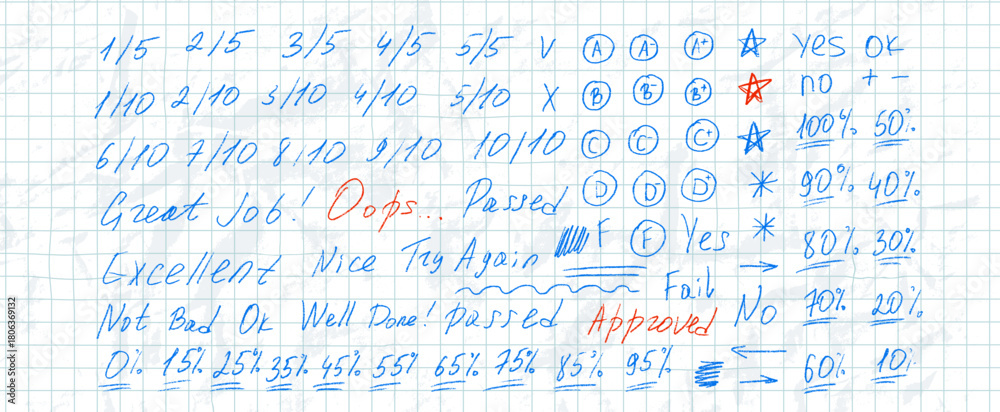 1/5 2/5 3/5 4/5 5/5 V A A- A+ yes ok
1/10 2/10 3/10 4/10 5/10 X B B- B+ no + -
6/10 7/10 8/10 9/10 10/10 C C- C+ 100% 50%
Great Job! Oops... Passed D D- D+ 90% 40%
F F Yes 80% 30%
Excellent Nice Try Again Fail
Not Bad Ok Well Done! passed Approved No 70% 20%
0% 15% 25% 35% 45% 55% 65% 75% 85% 95% 60% 10%
Adobe Stock | #1806369132